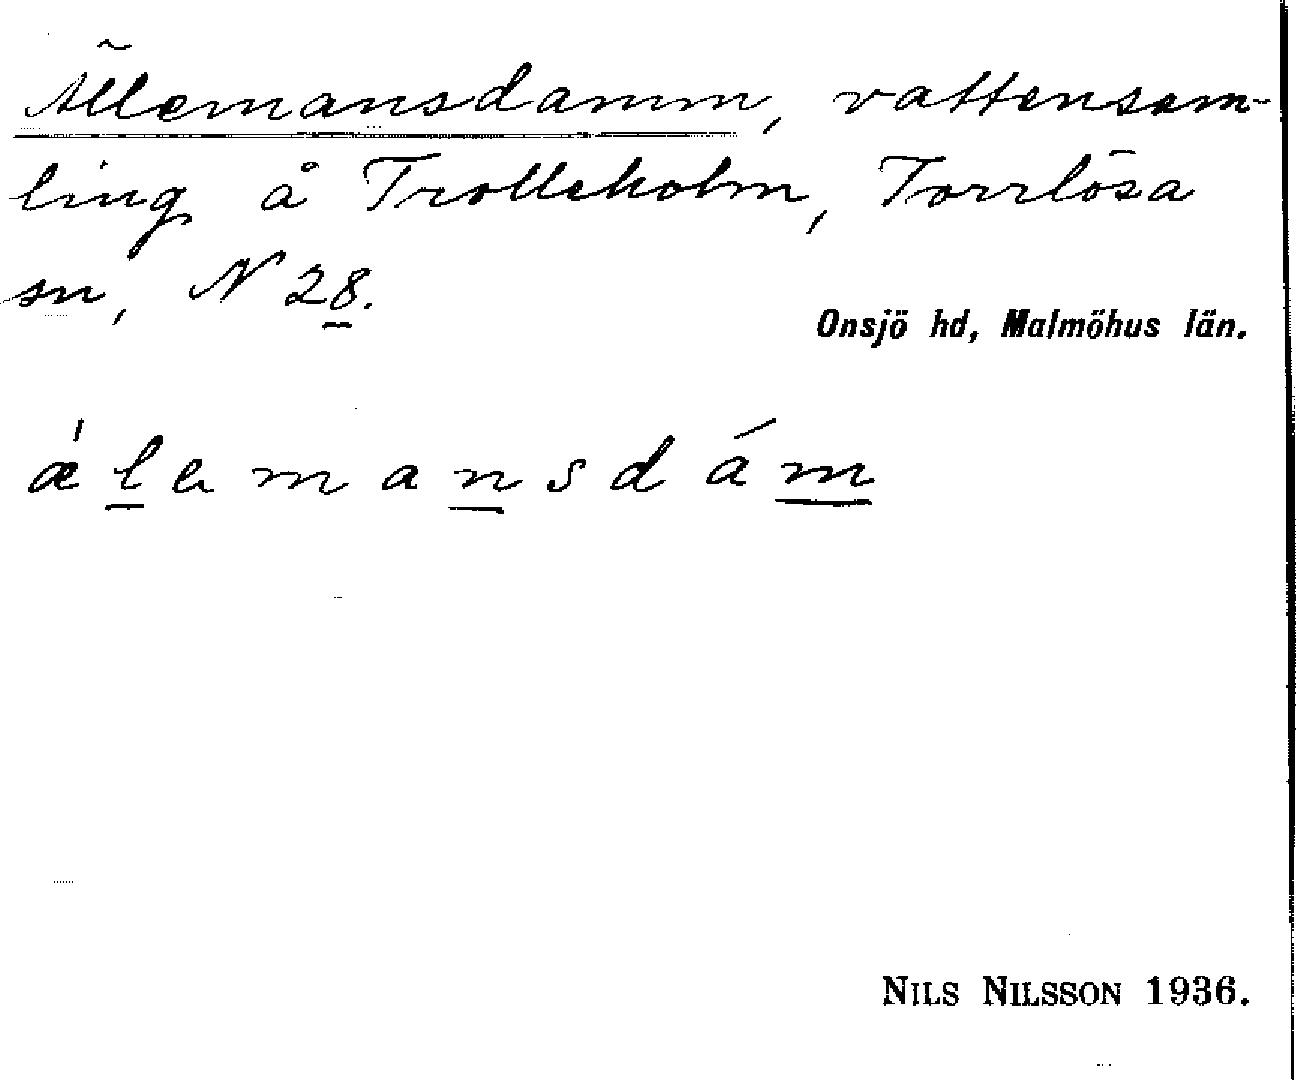 Ällemansdamm, vattensam-
ling å Trolleholm, Torrlösa
sn, N 28.
Onsjö hd, Malmöhus län.
ǽlemansdám
NILS NILSSON 1936.